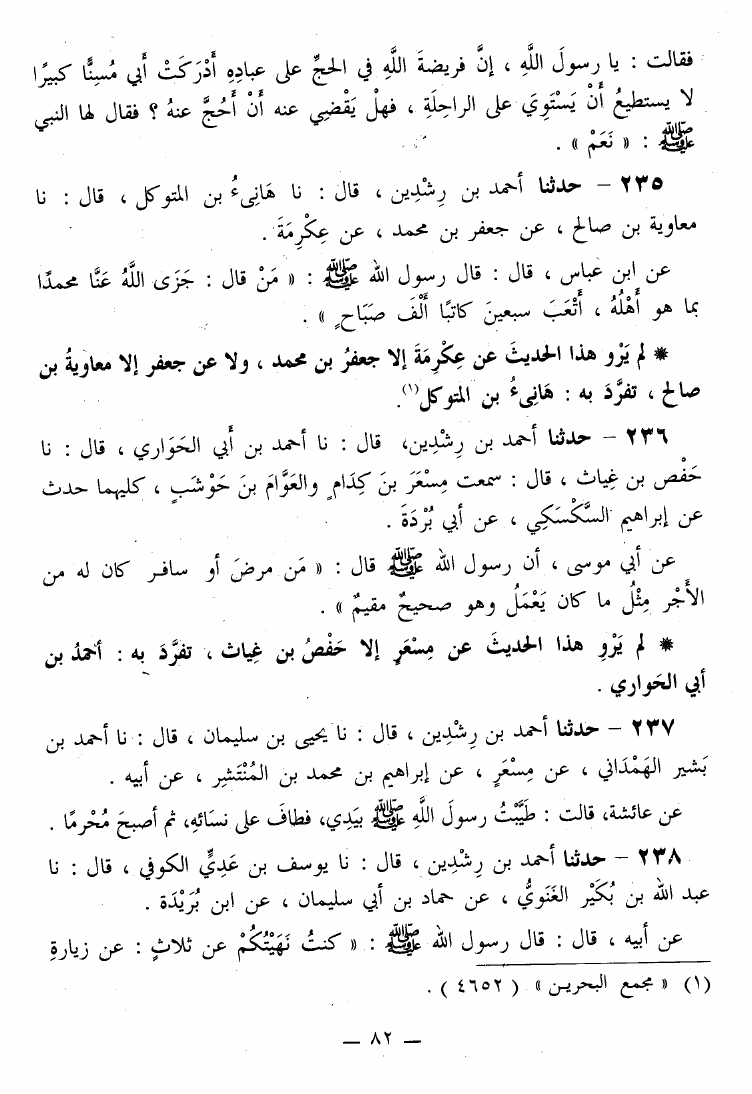 فقالت : يا رسولَ اللَّهِ ، إنَّ فريضةَ اللَّهِ في الحجِّ على عبادِهِ أَدْرَكَتْ أَبي مُسِنًّا كبيرًا
لا يستطيعُ أَنْ يَسْتَوِيَ على الراحِلَةِ ، فهلْ يَقْضِي عنه أَنْ أَحُجَّ عنهُ ؟ فقال لها النبي
ﷺ : « نَعَمْ » .
٢٣٥ – حدثنا أحمد بن رِشْدِين ، قال : نا هَانِىءُ بن المتوكل ، قال : نا
معاوية بن صالح ، عن جعفر بن محمد ، عن عِكْرِمَةَ .
عن ابن عباس ، قال : قال رسول الله ﷺ : « مَنْ قال : جَزَى اللَّهُ عَنَّا محمدًا
بما هو أَهْلُهُ ، أَتْعَبَ سبعينَ كاتبًا أَلْفَ صَبَاحٍ » .
* لم يَرْوِ هذا الحديثَ عن عِكْرِمَةَ إلا جعفرُ بن محمد ، ولا عن جعفر إلا معاويةُ بن
صالح ، تفرَّدَ به : هَانِىءُ بن المتوكل(١).
٢٣٦ – حدثنا أحمد بن رِشْدِين، قال : نا أحمد بن أَبي الحَوَاري ، قال : نا
حَفْص بن غِياث ، قال : سمعت مِسْعَرَ بنَ كِدَامٍ والعَوَّامَ بنَ حَوْشَبٍ ، كليهما حدث
عن إبراهيم السَّكْسَكِي ، عن أبي بُرْدَةَ .
عن أبي موسى ، أن رسول الله ﷺ قال : « مَن مرضَ أو سافر كان له من
الأَجْر مِثْلُ ما كان يَعْمَلُ وهو صحيحٌ مقيمٌ » .
* لم يَرْوِ هذا الحديثَ عن مِسْعَرٍ إلا حَفْصُ بن غِياث ، تفرَّدَ به : أحمدُ بن
أبي الحَواري .
٢٣٧ – حدثنا أحمد بن رِشْدِين ، قال : نا يحيى بن سليمان ، قال : نا أحمد بن
بَشير الهَمْدَاني ، عن مِسْعَرٍ ، عن إبراهيم بن محمد بن المُنْتَشِر ، عن أبيه .
عن عائشة، قالت : طَيَّبْتُ رسولَ اللَّهِ ﷺ بيَدِي، فطافَ على نسَائهِ، ثم أصبحَ مُحْرمًا .
٢٣٨ – حدثنا أحمد بن رِشْدِين ، قال : نا يوسف بن عَدِيٍّ الكوفي ، قال : نا
عبد الله بن بُكَيْر الغَنَويُّ ، عن حماد بن أبي سليمان ، عن ابن بُرَيْدَة .
عن أبيه ، قال : قال رسول الله ﷺ : « كنتُ نَهَيْتُكُمْ عن ثلاثٍ : عن زيارةِ
(١) « مجمع البحرين » ( ٤٦٥٢ ) .
— ٨٢ —